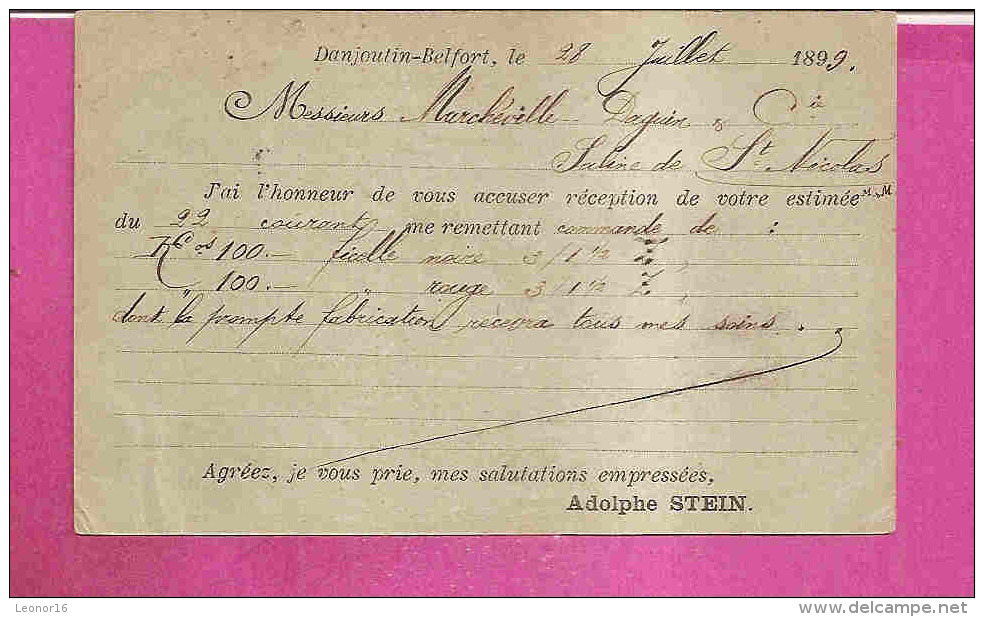 Danjoutin-Belfort, le 28 Juillet 1899.
Messieurs Marchéville Daguin & Cie
Saline de St Nicolas
J'ai l'honneur de vous accuser réception de votre estimée
du 22 courant, me remettant commande de :
Kos 100.— ficelle noire 3/1 ½
" 100.— " rouge 3/1 ½
dont la prompte fabrication recevra tous mes soins.
Agréez, je vous prie, mes salutations empressées,
Adolphe STEIN.
Leonor16
www.delcampe.net